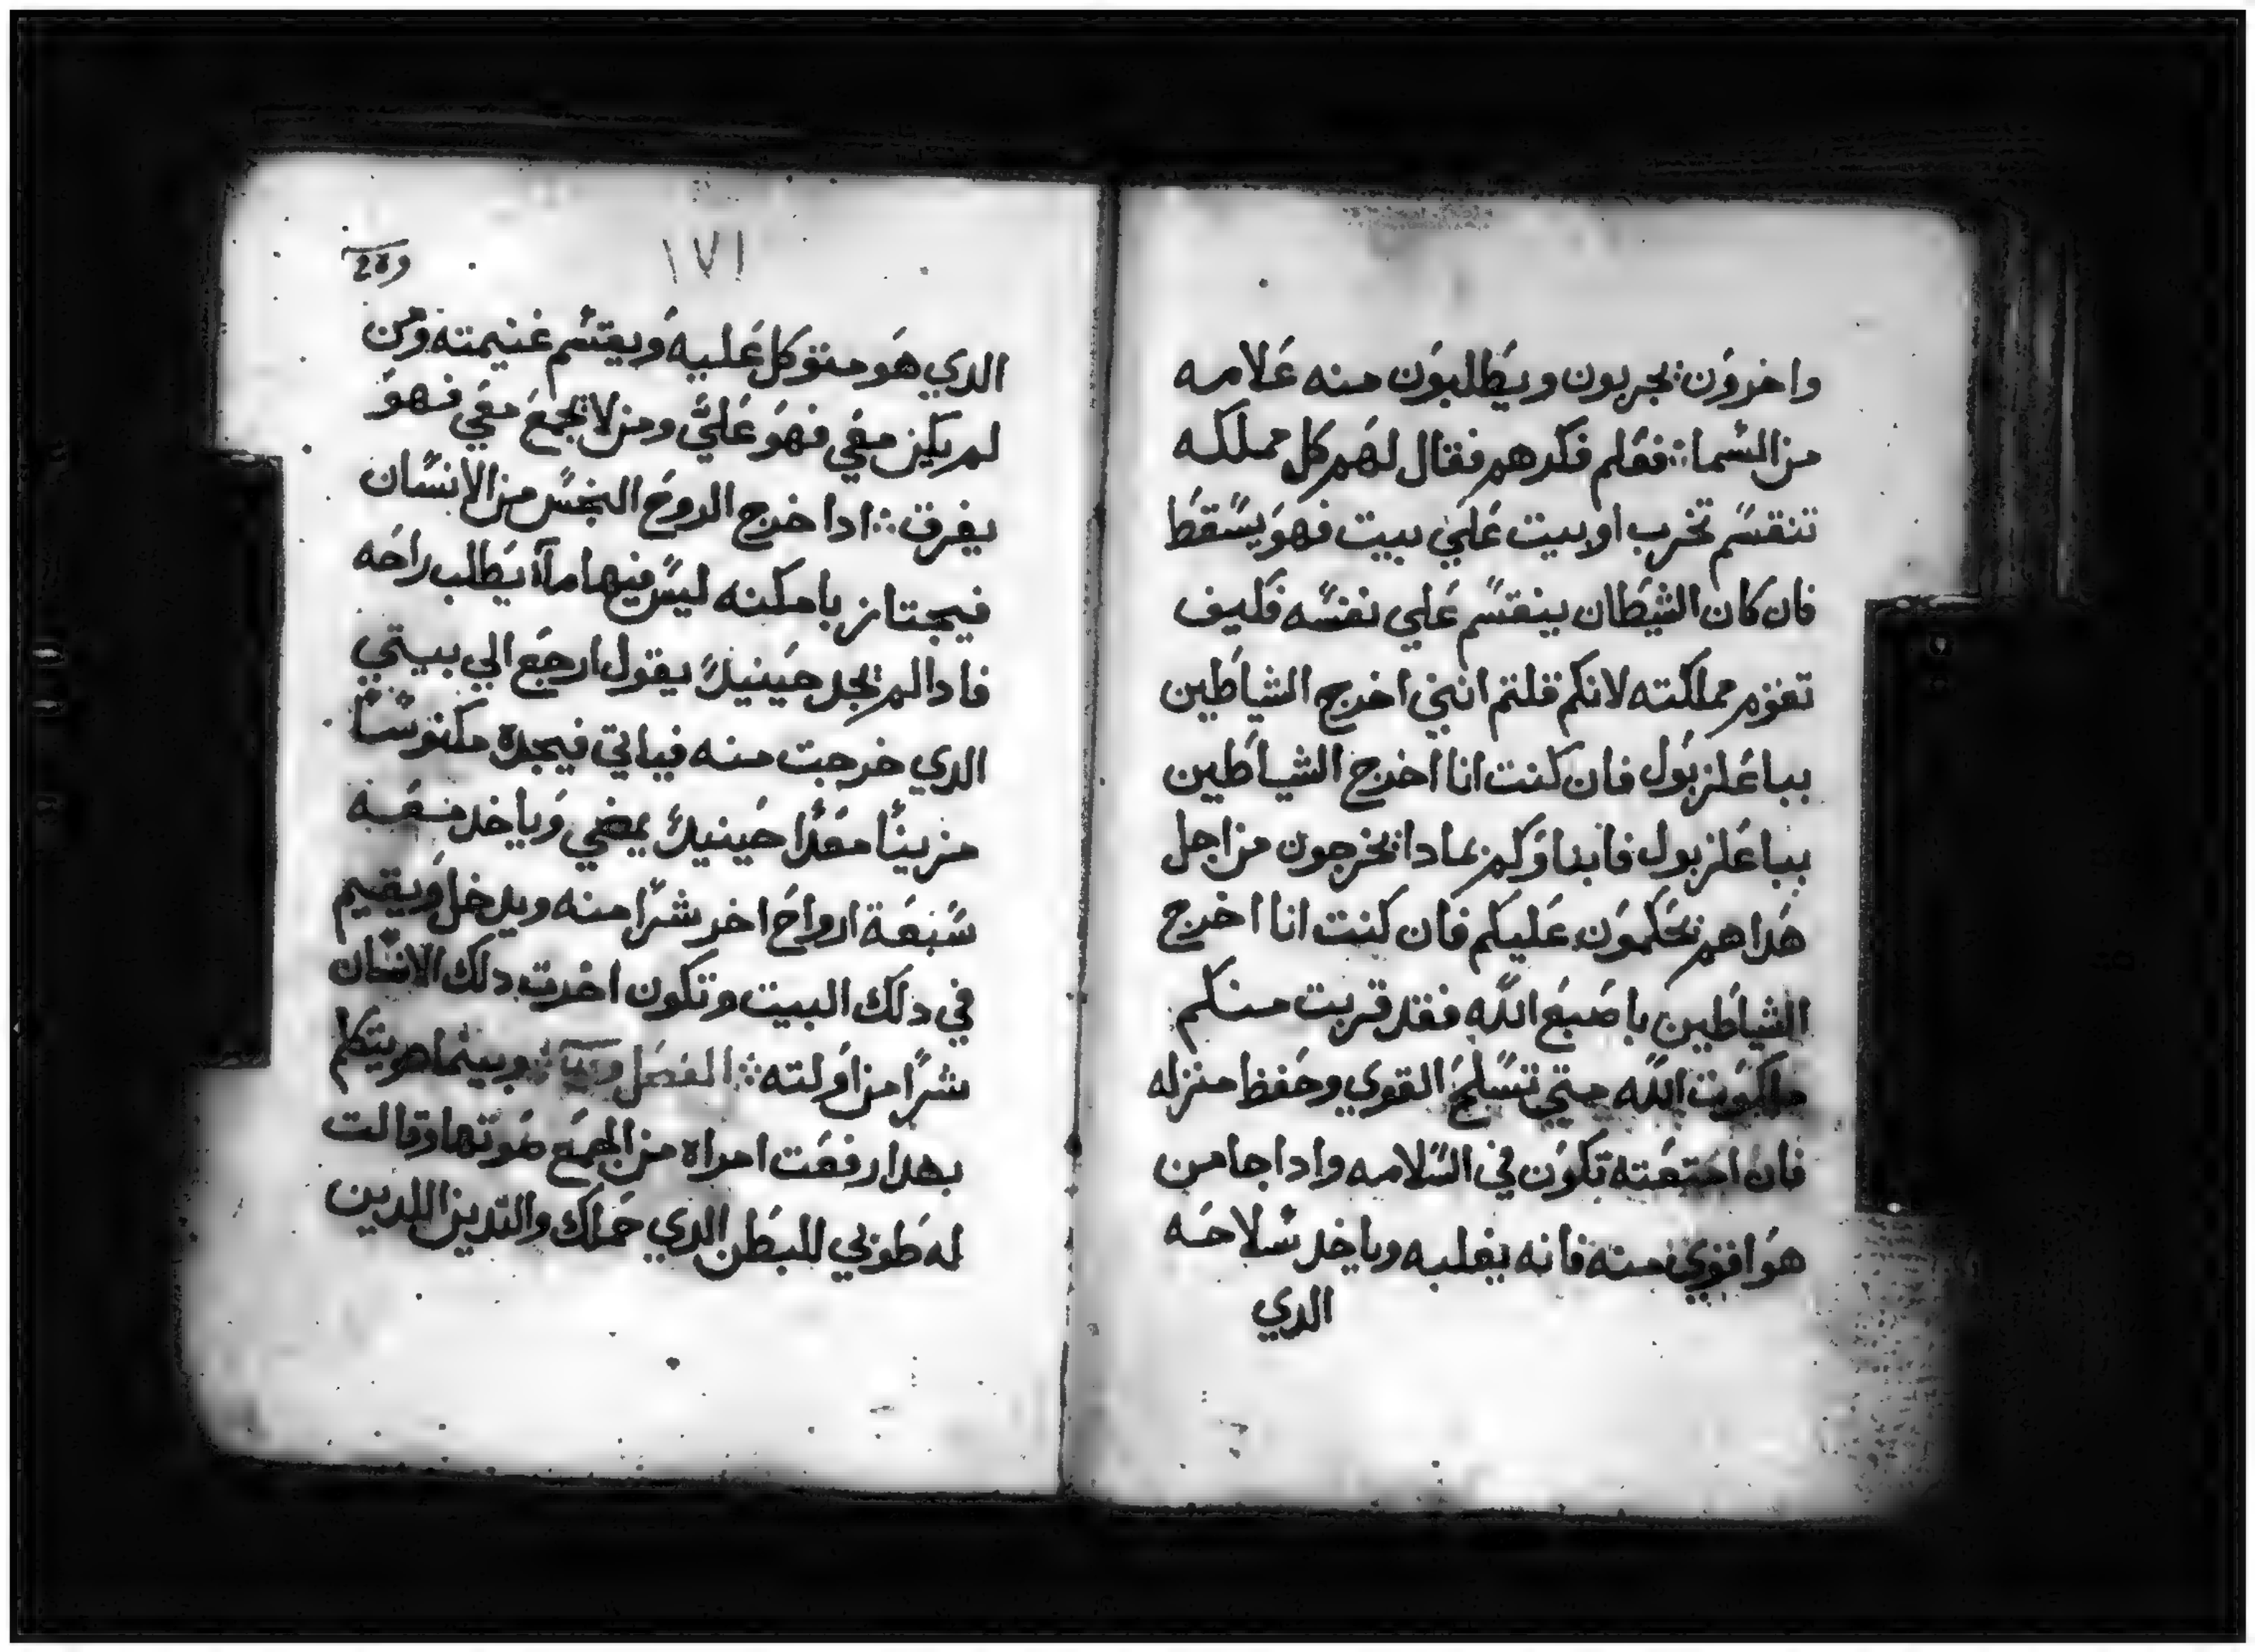 واخرون يجربون ويطلبون منه علامه
من السما ؞ فعلم فكرهم فقال لهم كل مملكه
تنقسم تخرب او بيت علي بيت فهو يسقط
فان كان الشيطان ينقسم علي نفسه فكيف
تقوم مملكته لانكم قلتم انني اخرج الشياطين
بباعلزبول فان كنت انا اخرج الشياطين
بباعلزبول فابناوكم بمادا يخرجون من اجل
هدا هم يحكمون عليكم فان كنت انا اخرج
الشياطين باصبع الله فقد قربت منكم
ملكوت الله متي تسلح القوي وحفظ منزله
فان امتعته تكون في السلامه وادا جا من
هو اقوي منه فانه يغلبه وياخد سلاحه
الدي
١٧١
الدي هو متوكل عليه ويقتسم غنيمته ومن
لم يكن معي فهو علي ومن لا يجمع معي فهو
يفرق ؞ ادا خرج الروح النجس من الانسان
فيجتاز بامكنه ليس فيها مآا يطلب راحه
فادا لم يجد حينيدً يقول ارجع الي بيتي
الدي خرجت منه فياتي فيجده مكنوسًا
مزينًا معدًا حينيدً يمضي وياخد معه
سبعة ارواح اخر شرًا منه ويدخل ويقيم
في دلك البيت وتكون اخرت دلك الانسان
شرًا من اولته ؞ الفصل ؞ وبينما هو يتكلم
بهدا رفعت امراه من الجمع صوتها وقالت
له طوبي للبطن الدي حملك والتديين اللدين